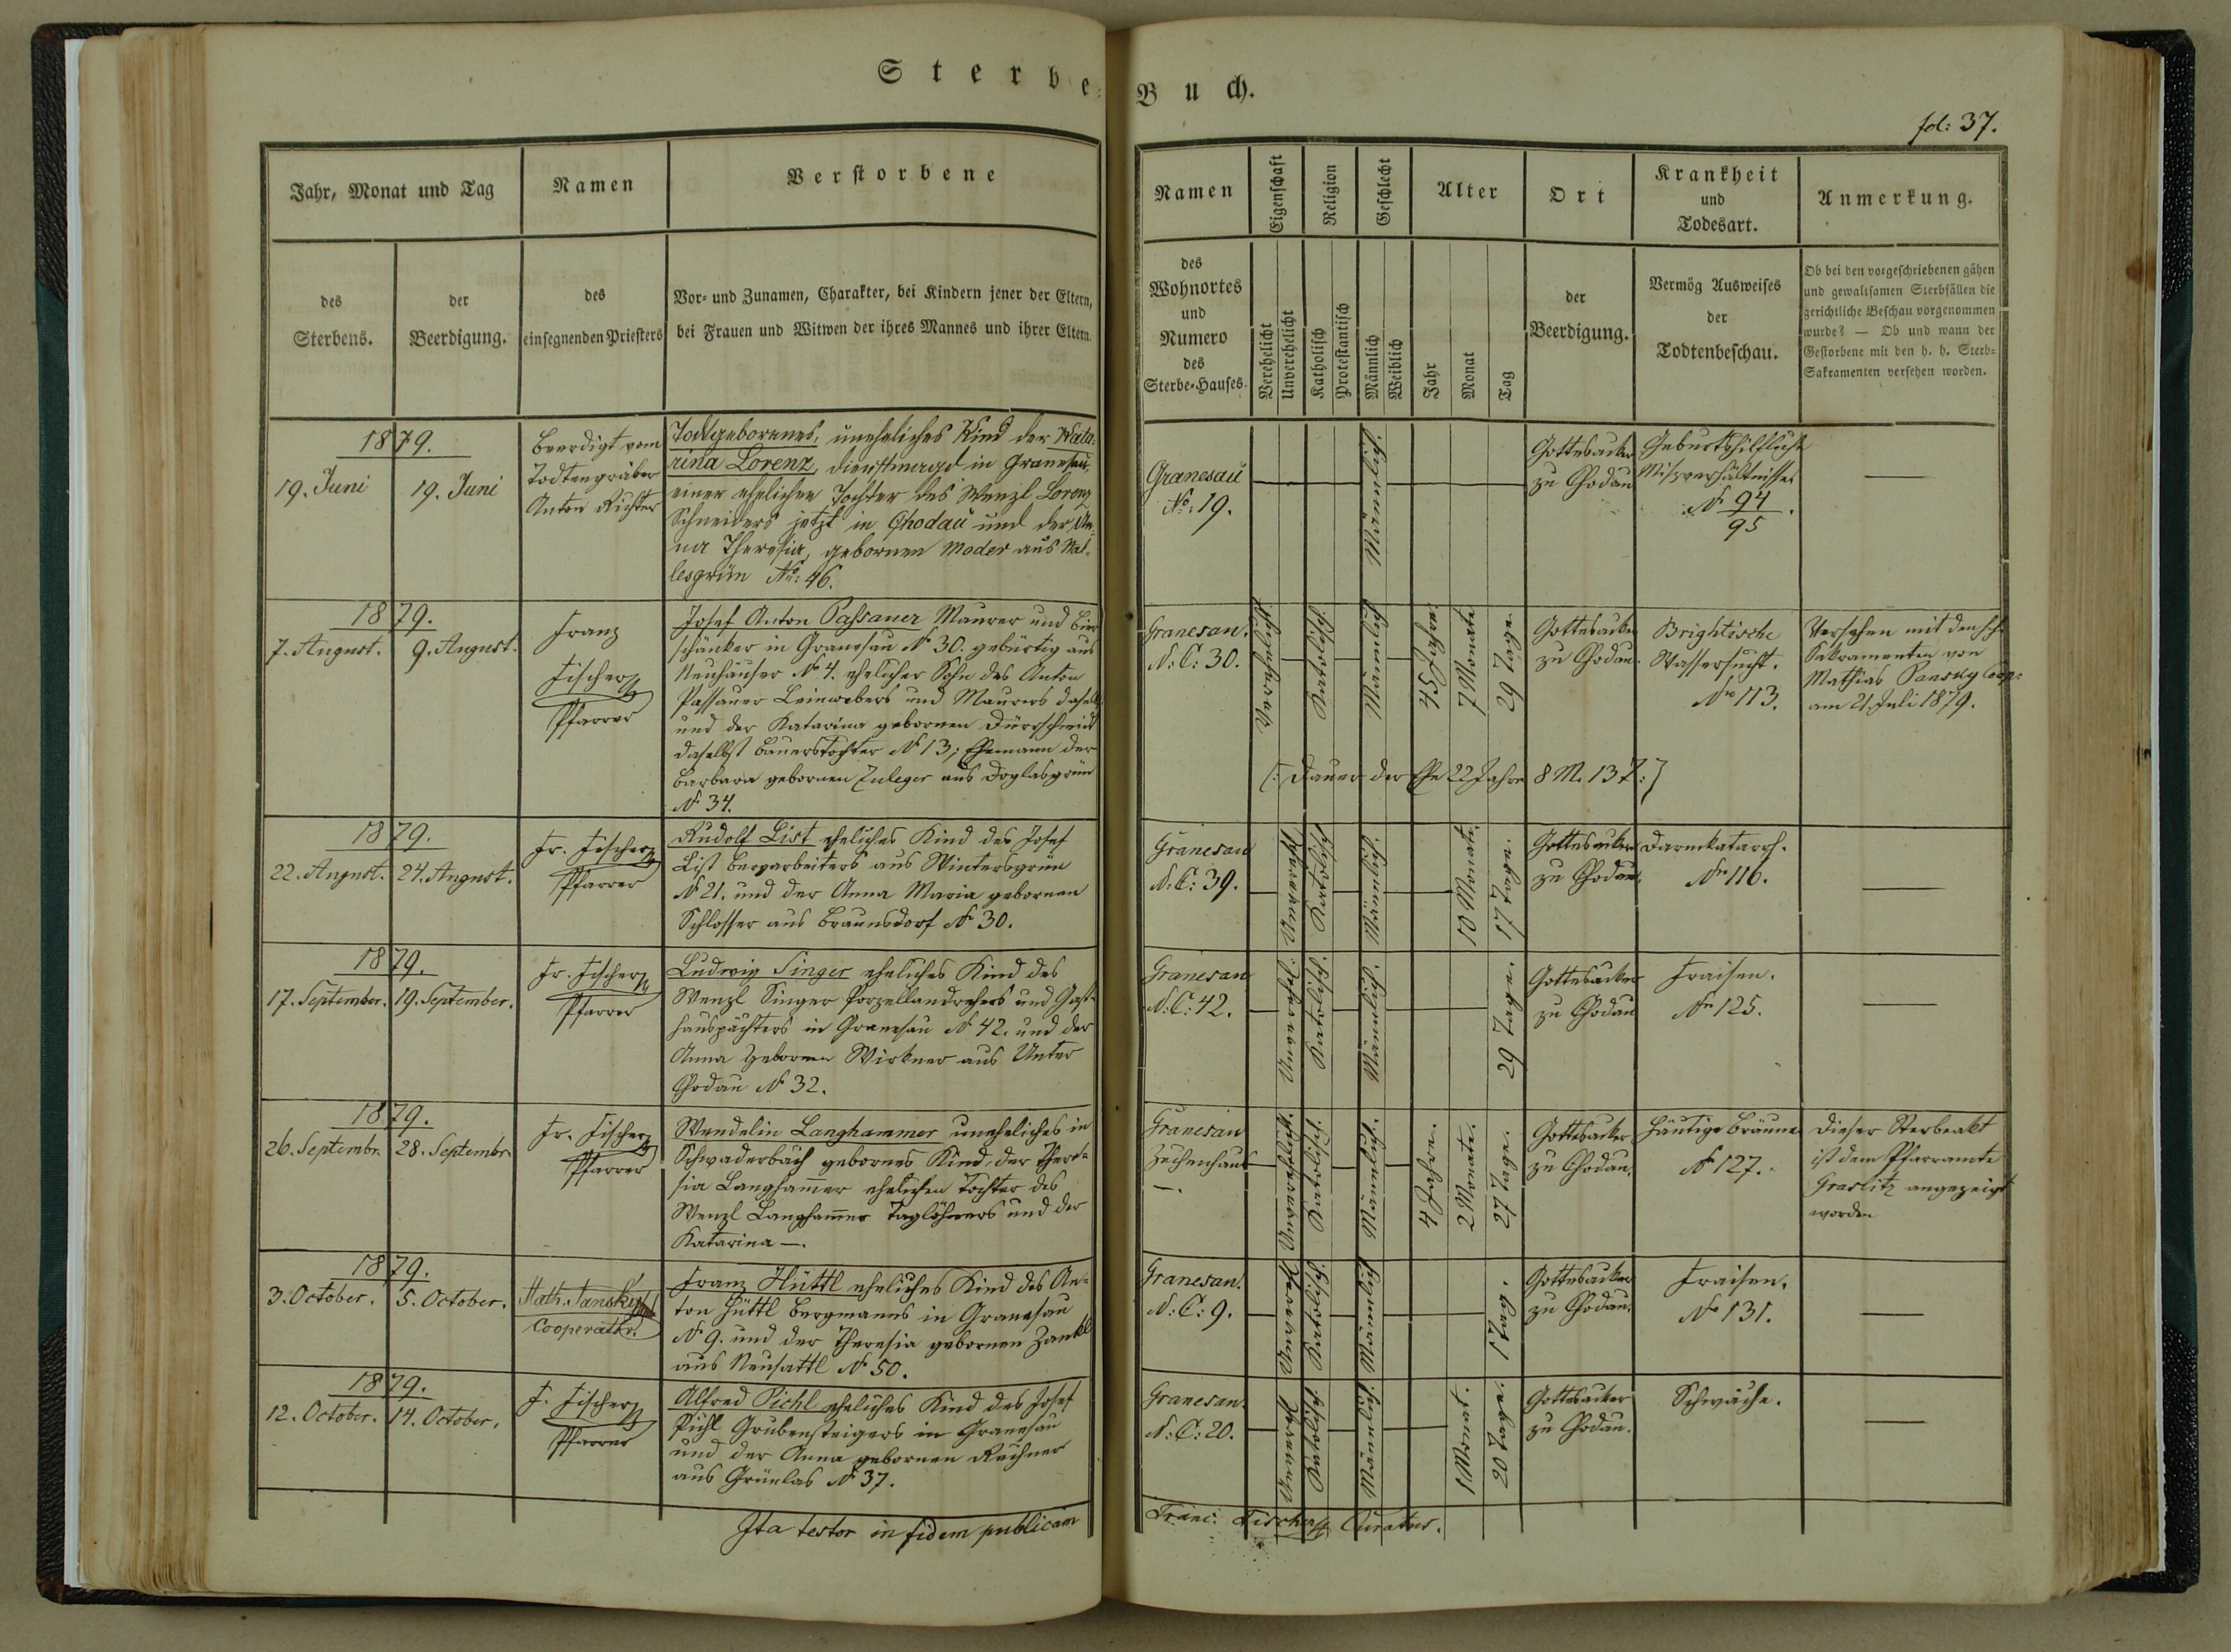 Sterbe-
Buch.
fol: 37.
Jahr, Monat und Tag
Namen
Verstorbene
des
Sterbens.
der
Beerdigung.
des
einsegnenden Priesters
Vor- und Zunamen, Charakter, bei Kindern jener der Eltern,
bei Frauen und Witwen der ihres Mannes und ihrer Eltern.
Namen
Eigenschaft
Religion
Geschlecht
Alter
Ort
Krankheit
und
Todesart.
Anmerkung.
des
Wohnortes
und
Numero
des
Sterbe-Hauses.
Verehelicht
Unverehelicht
Katholisch
Protestantisch
Männlich
Weiblich
Jahr
Monat
Tag
der
Beerdigung.
Vermög Ausweises
der
Todtenbeschau.
Ob bei den vorgeschriebenen gähen
und gewaltsamen Sterbfällen die
gerichtliche Beschau vorgenommen
wurde? — Ob und wann der
Gestorbene mit den h. h. Sterb-
Sakramenten versehen worden.
1879.
19. Juni
19. Juni
Beerdigt vom
Todtengräber
Anton Richter
Todtgebornes, uneheliches Kind der Kata-
rina Lorenz, Dienstmagd in Granesau,
einer ehelichen Tochter des Wenzl Lorenz
Schneiders jetzt in Chodau und der An-
na Theresia, gebornen Moder aus
lesgrün No: 46.
Granesau
No: 19.
Männlich.
Gottesacker
zu Chodau
Geburtshilfliche
Missverhältnisse
N 94
95
—
1879.
7. August.
9. August.
Franz
Fischer
Pfarrer
Josef Anton Passauer Maurer und Bier
schänker in Granesau N 30. gebürtig aus
Neuhäuser N 4. ehelicher Sohn des Anton
Passauer Leinwebers und Maurers daselbst
und der Katarina gebornen Dürrschmidt
daselbst Bauerstochter N 13; Ehemann der
Barbara gebornen Zuleger aus Doglasgrün
N 34.
Granesau.
N: C: 30.
Verehelicht.
Katolisch.
Männlich
45 Jahre.
7 Monate
29 Tage.
Gottesacker
zu Chodau.
Brightische
Wassersucht.
No 113.
Versehen mit den hh.
Sakramenten von
Mathias Pansky Coop:
am 21. Juli 1879.
[: Dauer der Ehe 22 Jahre 8 M. 13 T. :]
1879.
22. August.
24. August.
Fr. Fischer
Pfarrer
Rudolf List eheliches Kind des Josef
List Bergarbeiters aus Wintersgrün
N 21. und der Anna Maria gebornen
Schlosser aus Braunsdorf N 30.
Granesau
N. C: 39.
Unvereh
Katolisch
Männlich.
10 Monate.
17 Tage.
Gottesacker
zu Chodau.
Darmkatarrh.
No 116.
—
1879.
17. September.
19. September.
Fr. Fischer
Pfarrer
Ludwig Singer eheliches Kind des
Wenzl Singer Porzellandrehers und Gast-
hauspächters in Granesau N 42. und der
Anna gebornen Wirkner aus Unter
Chodau N 32.
Granesau
N: C: 42.
Unverehelicht.
Katolisch.
Männlich.
29 Tage.
Gottesacker
zu Chodau
Fraisen.
No 125.
—
1879.
26. Septembr.
28. Septembr
Fr. Fischer
Pfarrer
Wendelin Langhammer uneheliches in
Schwaderbach gebornes Kind, der There-
sia Langhammer ehelichen Tochter des
Wenzl Langhammer Taglöhners und der
Katarina —.
Granesau
Zechenhaus
—.
Unverehelicht.
Katolisch.
Männlich.
4 Jahre.
2 Monate.
27 Tage.
Gottesacker
zu Chodau.
Häutige Bräune
N 127.
Dieser Sterbeakt
ist dem Pfarramte
Graslitz angezeigt
worden
1879.
3. October.
5. October.
Math. Pansky
Cooperator.
Franz Hüttl eheliches Kind des An-
ton Hüttl Bergmanns in Granesau
N 9. und der Theresia gebornen Zankl
aus Neusattl N 50.
Granesau.
N: C: 9.
Unvereh
Katolisch.
Männlich
1 Tag.
Gottesacker
zu Chodau.
Fraisen.
No 131.
—
1879.
12. October.
14. October.
F. Fischer
Pfarrer
Alfred Pichl eheliches Kind des Josef
Pichl Grubensteigers in Granesau
und der Anna gebornen
aus Grünlas N 37.
Granesau.
N: C: 20.
Unvereh
Katolisch.
Männlich.
1 Monat.
20 Tage.
Gottesacker
zu Chodau.
Schwäche.
—
Ita testor in fidem publicam
Franc: Fischer Curatus.